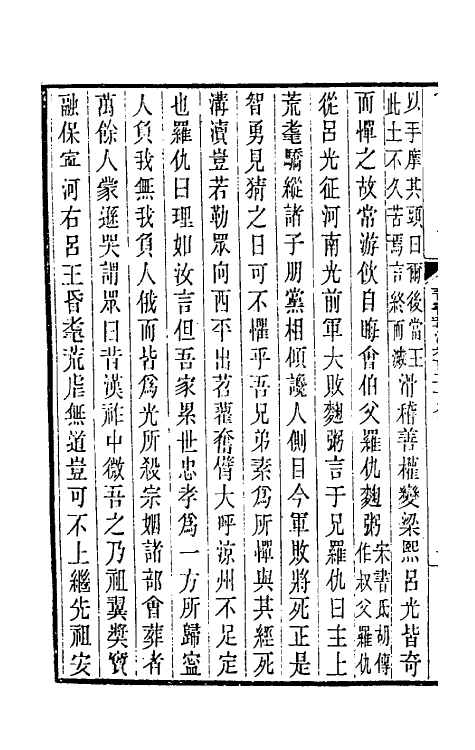 以手摩其頭曰爾後當王
此土不久苦焉言終而滅
滑稽善權變梁熙呂光皆奇
而憚之故常游飲自晦會伯父羅仇麴粥
宋書氐胡傳
作叔父羅仇
從呂光征河南光前軍大敗麴粥言于兄羅仇曰主上
荒耄驕縱諸子朋黨相傾讒人側目今軍敗將死正是
智勇見猜之日可不懼乎吾兄弟素爲所憚與其經死
溝瀆豈若勒眾向西平出苕藋奮臂大呼涼州不足定
也羅仇曰理如汝言但吾家累世忠孝爲一方所歸寍
人負我無我負人俄而皆爲光所殺宗姻諸部會葬者
萬餘人蒙遜哭謂眾曰昔漢祚中微吾之乃祖翼獎竇
融保寍河右呂王昏耄荒虐無道豈可不上繼先祖安